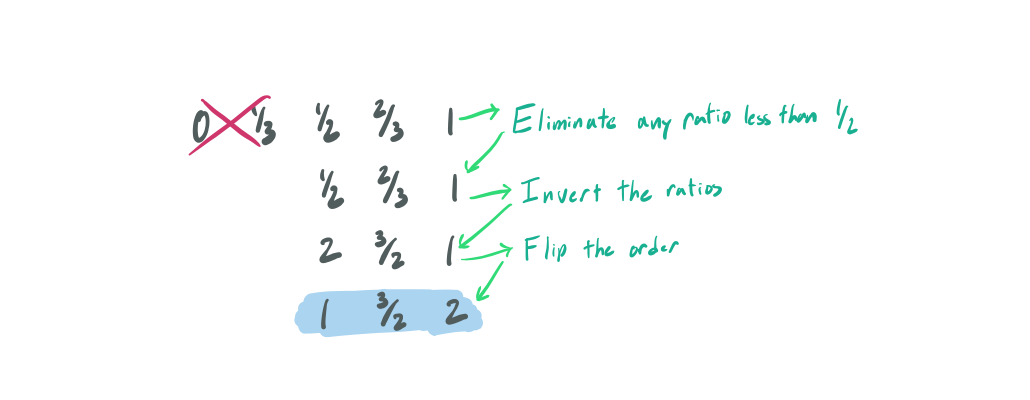 0 1/3 1/2 2/3 1 Eliminate any ratio less than 1/2
1/2 2/3 1 Invert the ratios
2 3/2 1 Flip the order
1 3/2 2